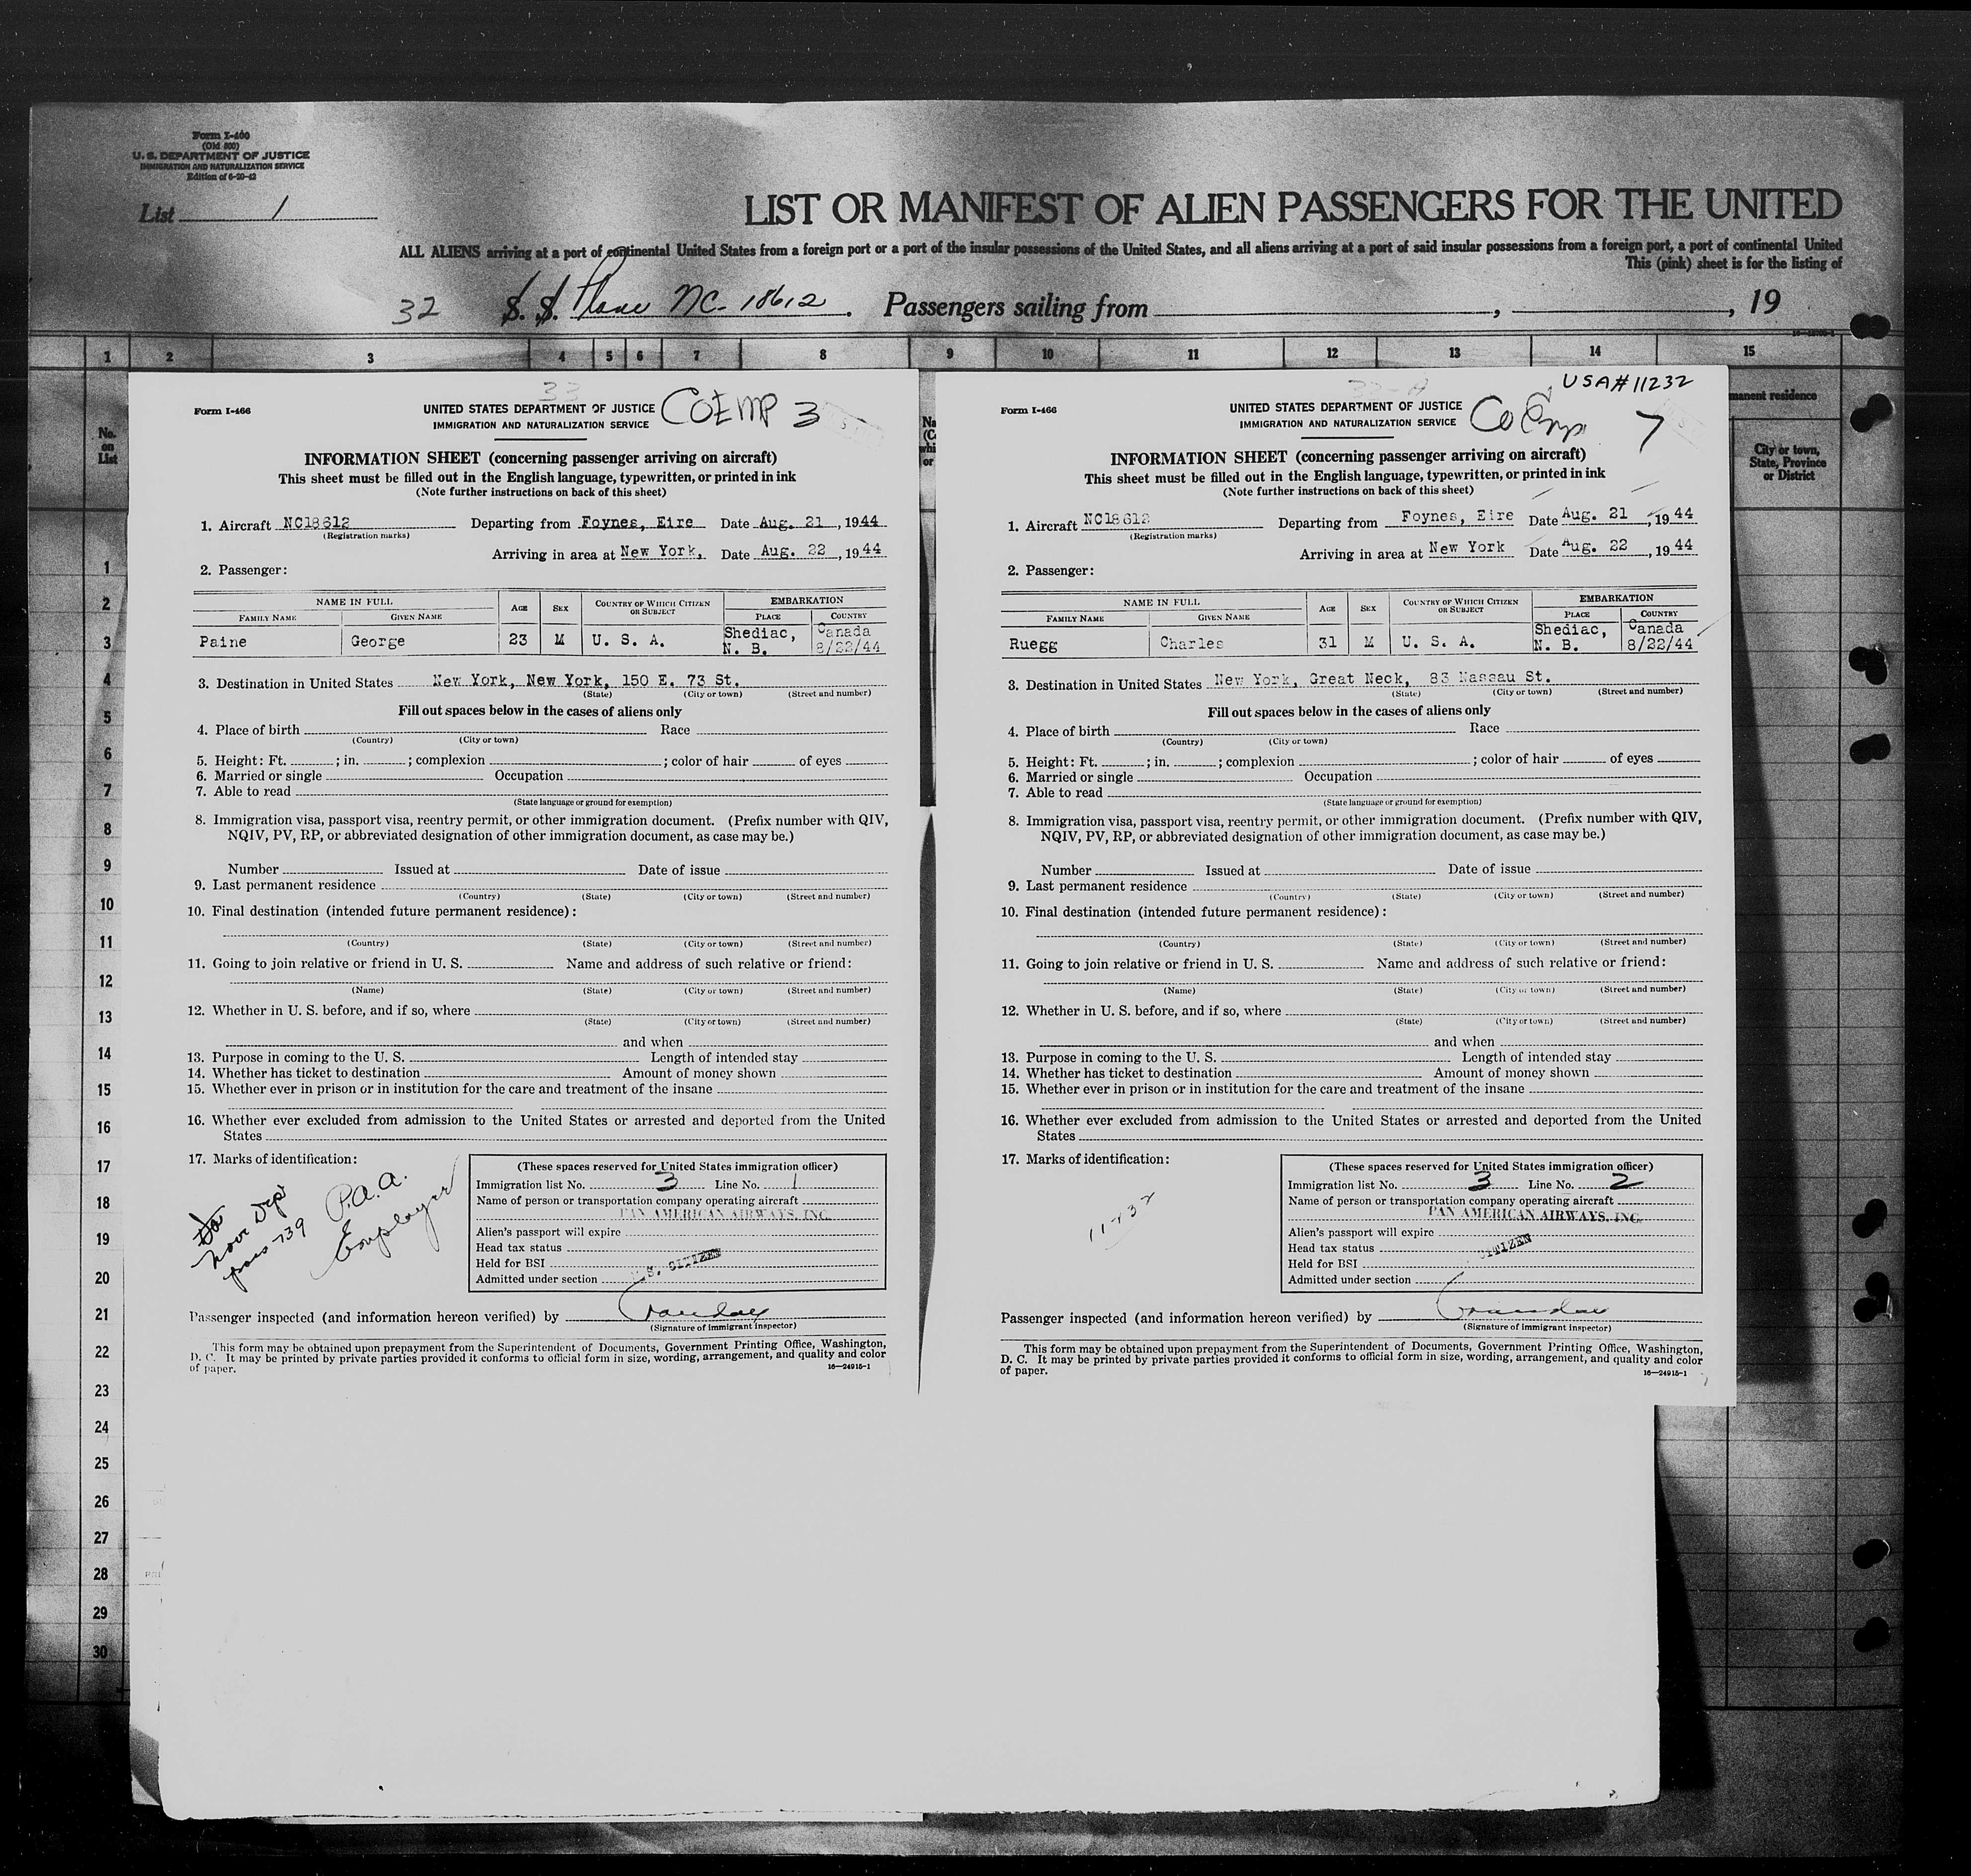 Form I-400
(Old 500)
U. S. DEPARTMENT OF JUSTICE
IMMIGRATION AND NATURALIZATION SERVICE
Edition of 6-20-42
List 1
LIST OR MANIFEST OF ALIEN PASSENGERS FOR THE UNITED
ALL ALIENS arriving at a port of continental United States from a foreign port or a port of the insular possessions of the United States, and all aliens arriving at a port of said insular possessions from a foreign port, a port of continental United
This (pink) sheet is for the listing of
32 S. S. Plane NC-18612. Passengers sailing from , , 19
1 2 3 4 5 6 7 8 9 10 11 12 13 14 15
No. on List
manent residence
City or town, State, Province or District
1
2
3
4
5
6
7
8
9
10
11
12
13
14
15
16
17
18
19
20
21
22
23
24
25
26
27
28
29
30
33
Form I-466
UNITED STATES DEPARTMENT OF JUSTICE COEMP 3
IMMIGRATION AND NATURALIZATION SERVICE
INFORMATION SHEET (concerning passenger arriving on aircraft)
This sheet must be filled out in the English language, typewritten, or printed in ink
(Note further instructions on back of this sheet)
1. Aircraft NC18612 Departing from Foynes, Eire Date Aug. 21, 1944
(Registration marks)
Arriving in area at New York, Date Aug. 22, 1944
2. Passenger:
NAME IN FULL AGE SEX COUNTRY OF WHICH CITIZEN OR SUBJECT EMBARKATION
FAMILY NAME GIVEN NAME PLACE COUNTRY
Paine George 23 M U. S. A. Shediac, N. B. Canada 8/22/44
3. Destination in United States New York, New York, 150 E. 73 St.
(State) (City or town) (Street and number)
Fill out spaces below in the cases of aliens only
4. Place of birth Race
(Country) (City or town)
5. Height: Ft. ; in. ; complexion ; color of hair of eyes
6. Married or single Occupation
7. Able to read
(State language or ground for exemption)
8. Immigration visa, passport visa, reentry permit, or other immigration document. (Prefix number with QIV,
NQIV, PV, RP, or abbreviated designation of other immigration document, as case may be.)
Number Issued at Date of issue
9. Last permanent residence
(Country) (State) (City or town) (Street and number)
10. Final destination (intended future permanent residence):
(Country) (State) (City or town) (Street and number)
11. Going to join relative or friend in U. S. Name and address of such relative or friend:
(Name) (State) (City or town) (Street and number)
12. Whether in U. S. before, and if so, where
(State) (City or town) (Street and number)
and when
13. Purpose in coming to the U. S. Length of intended stay
14. Whether has ticket to destination Amount of money shown
15. Whether ever in prison or in institution for the care and treatment of the insane
16. Whether ever excluded from admission to the United States or arrested and deported from the United
States
17. Marks of identification:
P.A.A.
(These spaces reserved for United States immigration officer)
Immigration list No. 3 Line No. 1
Name of person or transportation company operating aircraft
PAN AMERICAN AIRWAYS, INC.
Alien's passport will expire
Head tax status
Held for BSI
U.S. CITIZEN
Admitted under section
Passenger inspected (and information hereon verified) by
(Signature of immigrant inspector)
This form may be obtained upon prepayment from the Superintendent of Documents, Government Printing Office, Washington,
D. C. It may be printed by private parties provided it conforms to official form in size, wording, arrangement, and quality and color
of paper. 16—24915-1
33-A
USA#11232
Form I-466
UNITED STATES DEPARTMENT OF JUSTICE Co Emp 7
IMMIGRATION AND NATURALIZATION SERVICE
INFORMATION SHEET (concerning passenger arriving on aircraft)
This sheet must be filled out in the English language, typewritten, or printed in ink
(Note further instructions on back of this sheet)
1. Aircraft NC18612 Departing from Foynes, Eire Date Aug. 21, 1944
(Registration marks)
Arriving in area at New York Date Aug. 22, 1944
2. Passenger:
NAME IN FULL AGE SEX COUNTRY OF WHICH CITIZEN OR SUBJECT EMBARKATION
FAMILY NAME GIVEN NAME PLACE COUNTRY
Ruegg Charles 31 M U. S. A. Shediac, N. B. Canada 8/22/44
3. Destination in United States New York, Great Neck, 83 Nassau St.
(State) (City or town) (Street and number)
Fill out spaces below in the cases of aliens only
4. Place of birth Race
(Country) (City or town)
5. Height: Ft. ; in. ; complexion ; color of hair of eyes
6. Married or single Occupation
7. Able to read
(State language or ground for exemption)
8. Immigration visa, passport visa, reentry permit, or other immigration document. (Prefix number with QIV,
NQIV, PV, RP, or abbreviated designation of other immigration document, as case may be.)
Number Issued at Date of issue
9. Last permanent residence
(Country) (State) (City or town) (Street and number)
10. Final destination (intended future permanent residence):
(Country) (State) (City or town) (Street and number)
11. Going to join relative or friend in U. S. Name and address of such relative or friend:
(Name) (State) (City or town) (Street and number)
12. Whether in U. S. before, and if so, where
(State) (City or town) (Street and number)
and when
13. Purpose in coming to the U. S. Length of intended stay
14. Whether has ticket to destination Amount of money shown
15. Whether ever in prison or in institution for the care and treatment of the insane
16. Whether ever excluded from admission to the United States or arrested and deported from the United
States
17. Marks of identification:
11232
(These spaces reserved for United States immigration officer)
Immigration list No. 3 Line No. 2
Name of person or transportation company operating aircraft
PAN AMERICAN AIRWAYS, INC.
Alien's passport will expire
Head tax status
CITIZEN
Held for BSI
Admitted under section
Passenger inspected (and information hereon verified) by
(Signature of immigrant inspector)
This form may be obtained upon prepayment from the Superintendent of Documents, Government Printing Office, Washington,
D. C. It may be printed by private parties provided it conforms to official form in size, wording, arrangement, and quality and color
of paper. 16—24915-1